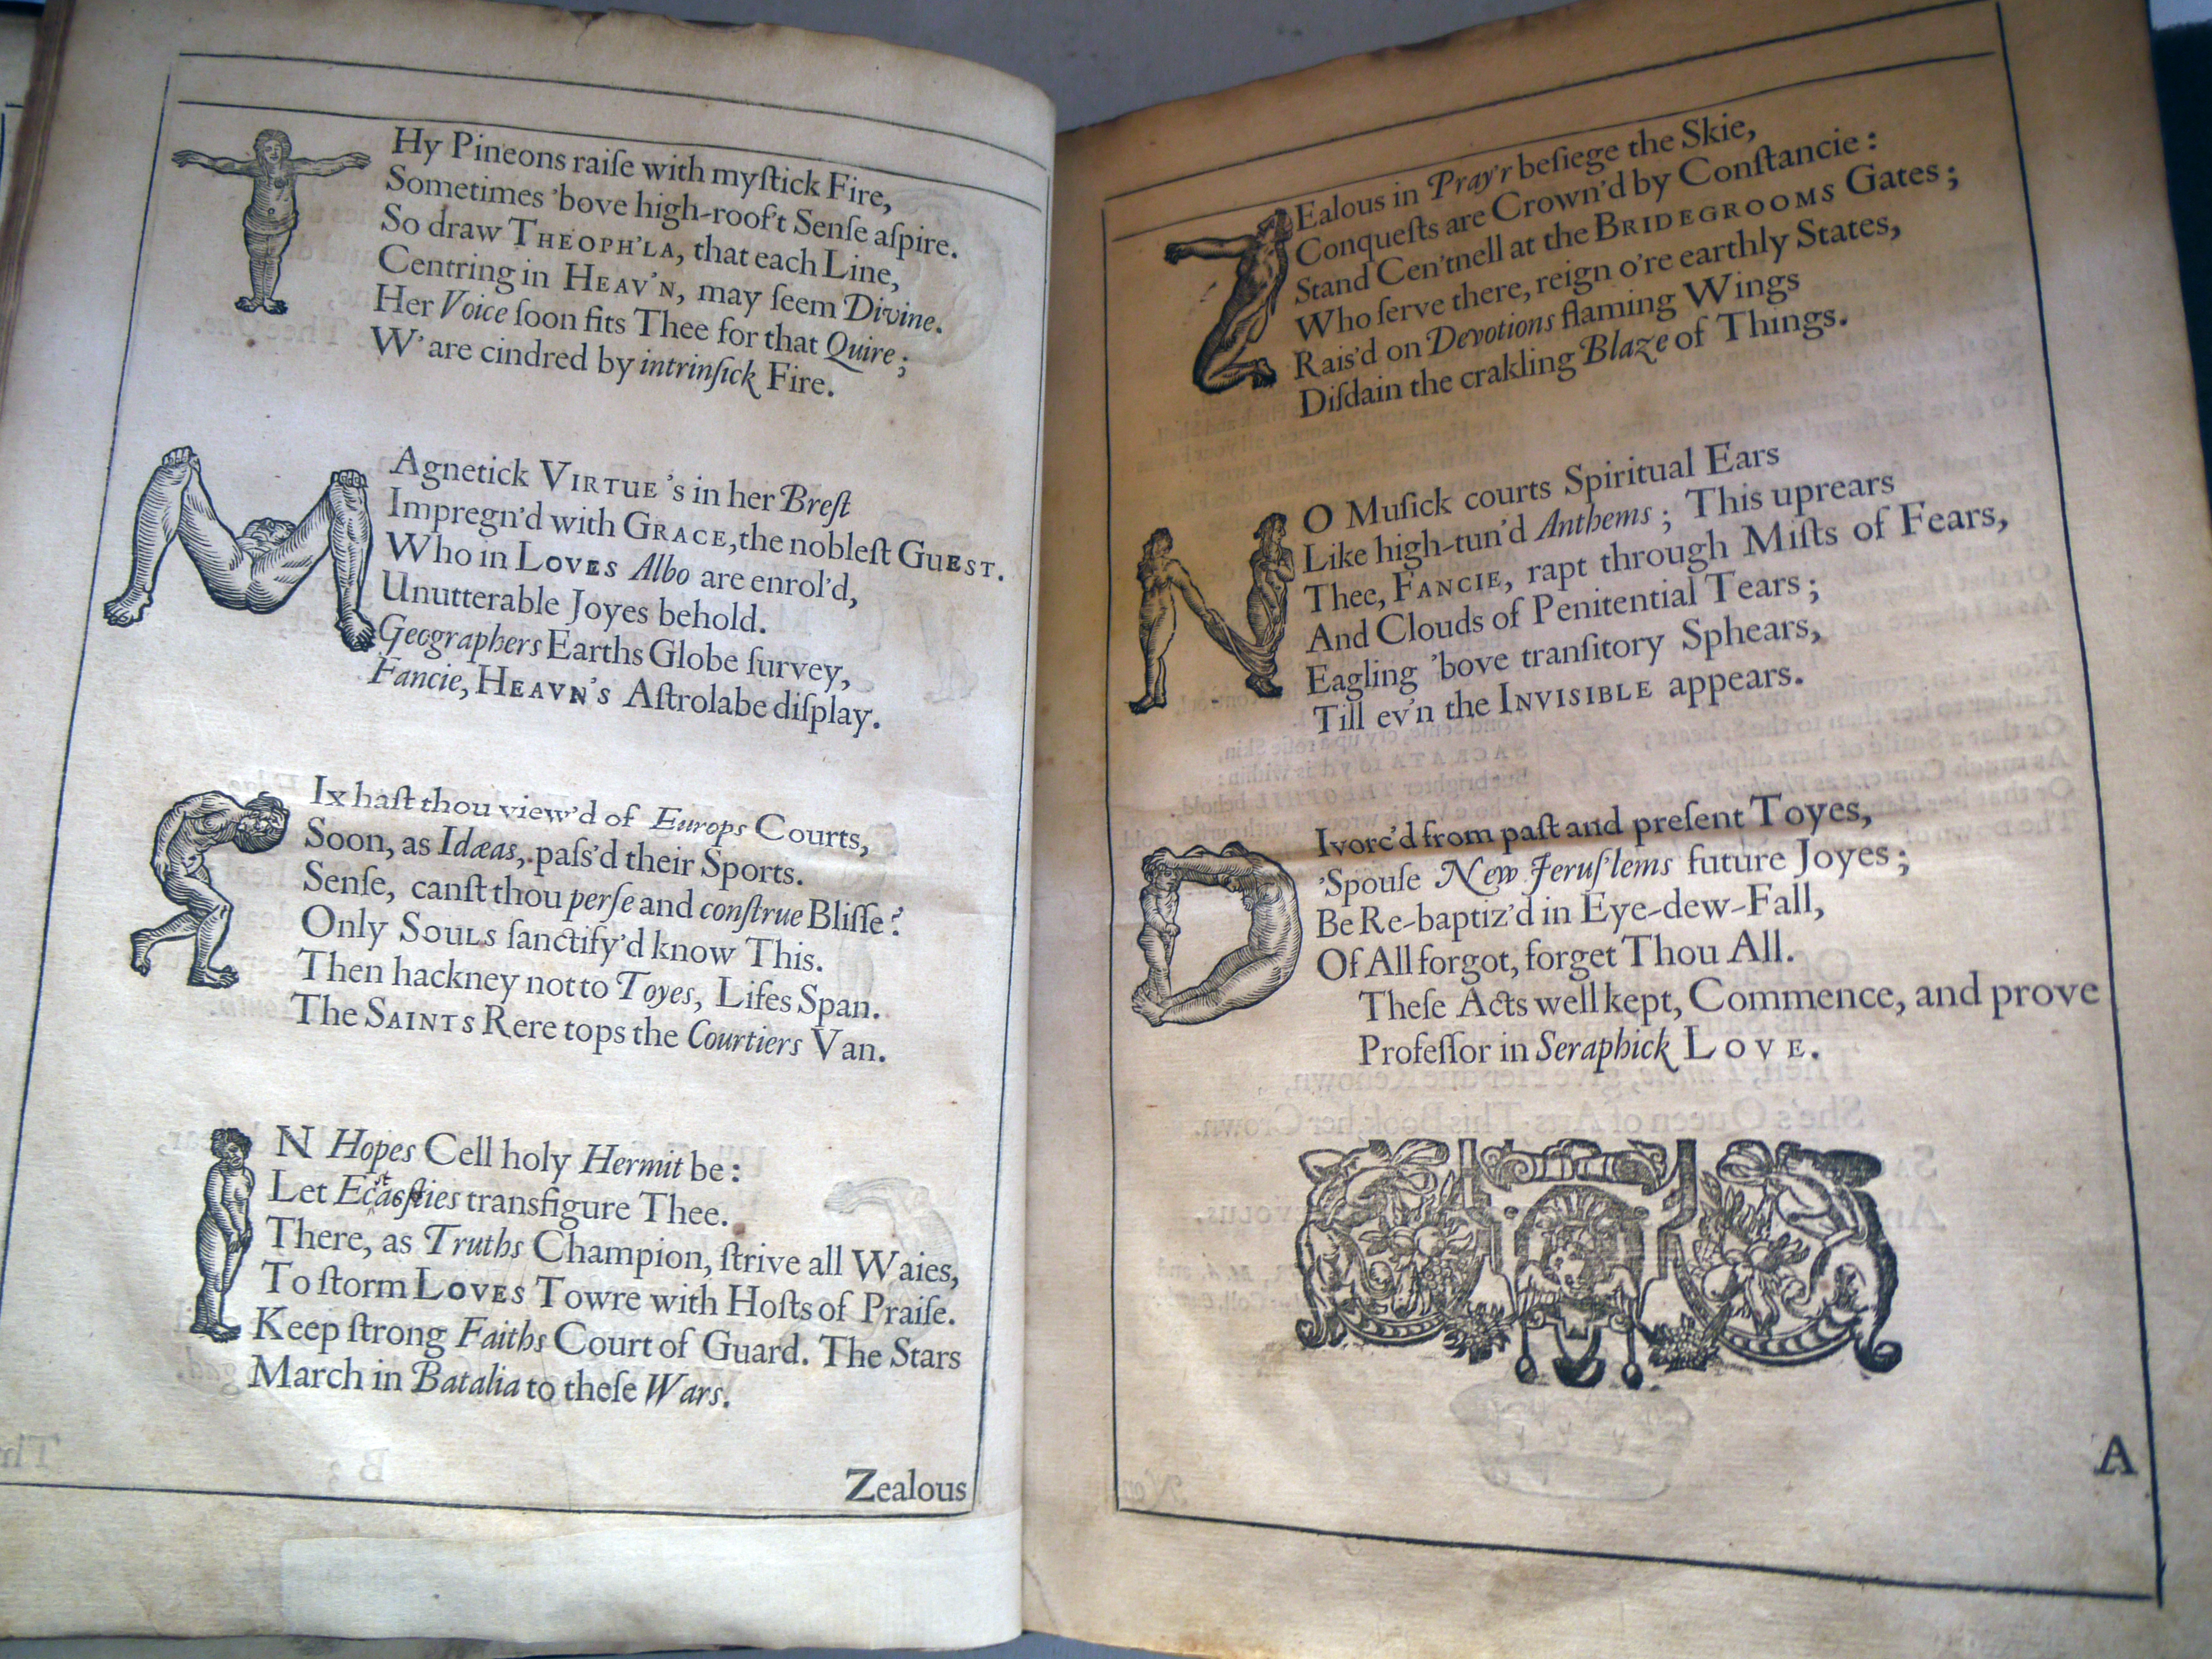 THy Pineons raiſe with myſtick Fire,
Sometimes 'bove high-roof't Senſe aſpire.
So draw THEOPH'LA, that each Line,
Centring in HEAV'N, may ſeem Divine.
Her Voice ſoon fits Thee for that Quire;
W'are cindred by intrinſick Fire.
MAgnetick VIRTUE's in her Breſt
Impregn'd with GRACE, the nobleſt GUEST.
Who in LOVES Albo are enrol'd,
Unutterable Joyes behold.
Geographers Earths Globe ſurvey,
Fancie, HEAVN'S Aſtrolabe diſplay.
SIx haſt thou view'd of Europs Courts,
Soon, as Idæas, paſs'd their Sports.
Senſe, canſt thou perſe and conſtrue Bliſſe?
Only SOULS ſanctify'd know This.
Then hackney not to Toyes, Lifes Span.
The SAINTS Rere tops the Courtiers Van.
IN Hopes Cell holy Hermit be:
Let transfigure Thee.
There, as Truths Champion, ſtrive all Waies,
To ſtorm LOVES Towre with Hoſts of Praiſe.
Keep ſtrong Faiths Court of Guard. The Stars
March in Batalia to theſe Wars.
Zealous
ZEalous in Pray'r beſiege the Skie,
Conqueſts are Crown'd by Conſtancie:
Stand Cen'tnell at the BRIDEGROOMS Gates;
Who ſerve there, reign o're earthly States,
Rais'd on Devotions flaming Wings
Diſdain the crakling Blaze of Things.
NO Muſick courts Spiritual Ears
Like high-tun'd Anthems; This uprears
Thee, FANCIE, rapt through Miſts of Fears,
And Clouds of Penitential Tears;
Eagling 'bove tranſitory Sphears,
Till ev'n the INVISIBLE appears.
DIvorc'd from paſt and preſent Toyes,
'Spouſe New Jeruſ'lems future Joyes;
Be Re-baptiz'd in Eye-dew-Fall,
Of All forgot, forget Thou All.
Theſe Acts well kept, Commence, and prove
Profeſſor in Seraphick LOVE.
A